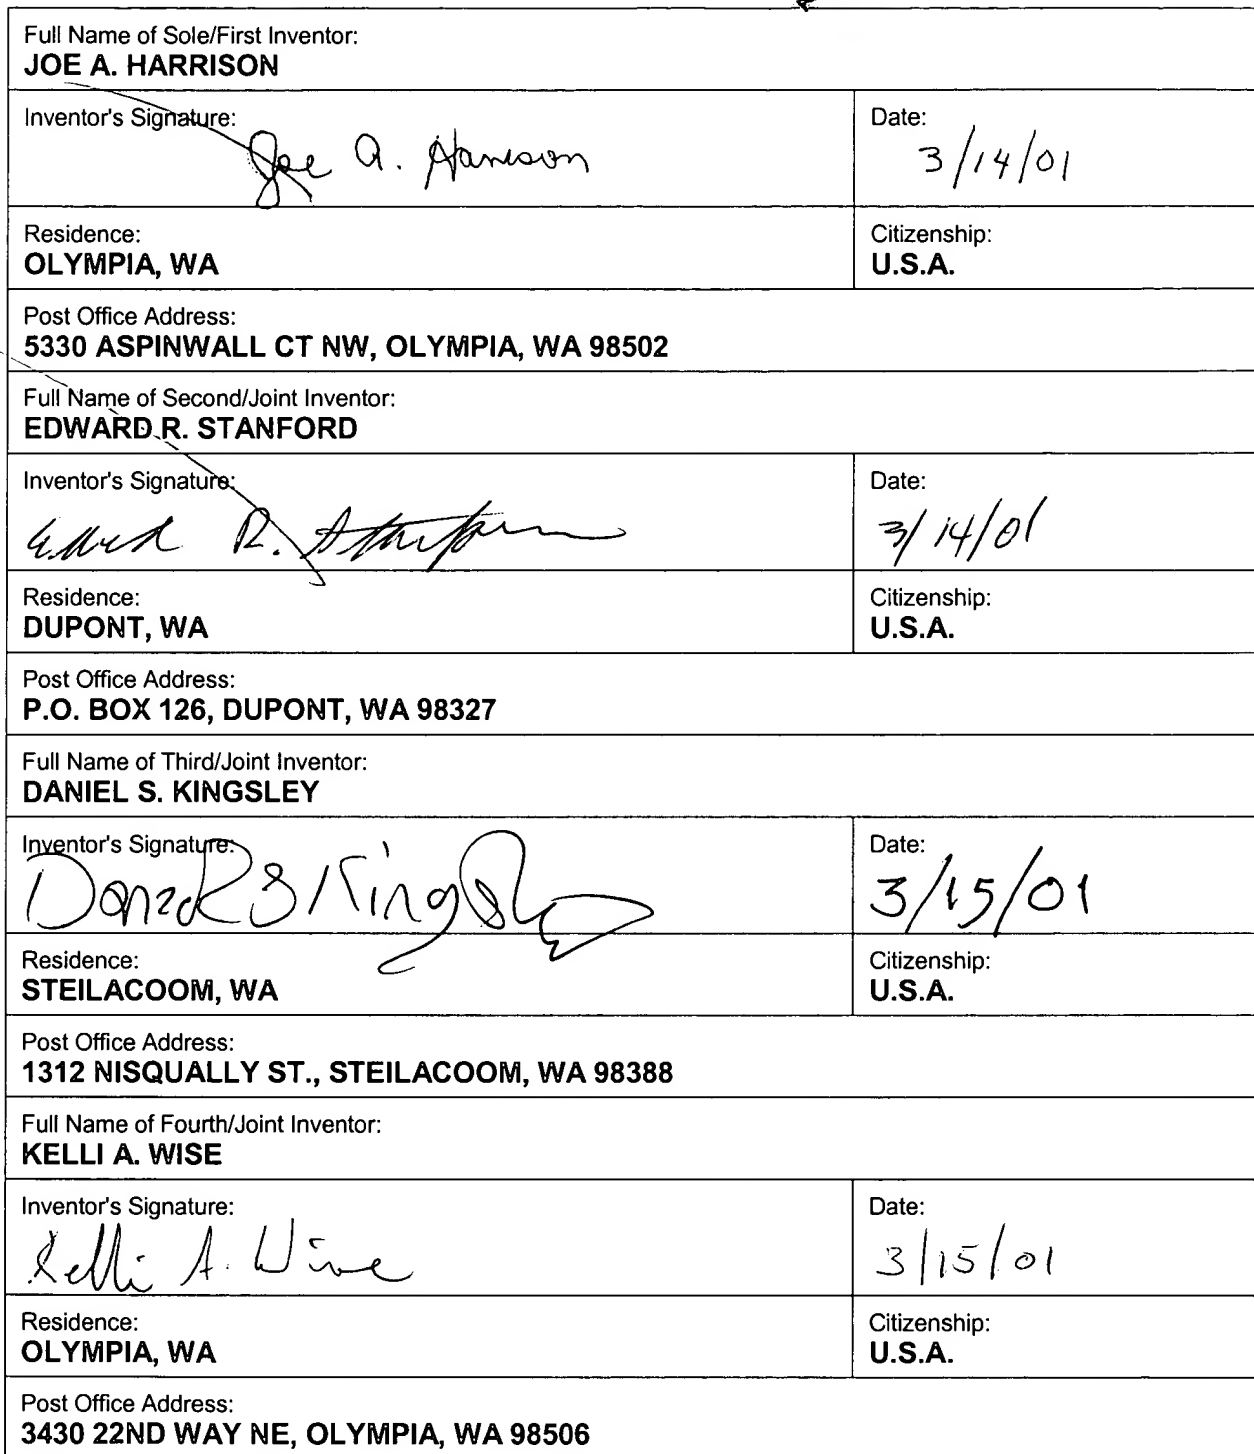 Full Name of Sole/First Inventor:
JOE A. HARRISON
Inventor's Signature:
Joe A. Harrison
Date:
3/14/01
Residence:
OLYMPIA, WA
Citizenship:
U.S.A.
Post Office Address:
5330 ASPINWALL CT NW, OLYMPIA, WA 98502
Full Name of Second/Joint Inventor:
EDWARD R. STANFORD
Inventor's Signature:
Edward R. Stanford
Date:
3/14/01
Residence:
DUPONT, WA
Citizenship:
U.S.A.
Post Office Address:
P.O. BOX 126, DUPONT, WA 98327
Full Name of Third/Joint Inventor:
DANIEL S. KINGSLEY
Inventor's Signature:
Daniel S Kingsley
Date:
3/15/01
Residence:
STEILACOOM, WA
Citizenship:
U.S.A.
Post Office Address:
1312 NISQUALLY ST., STEILACOOM, WA 98388
Full Name of Fourth/Joint Inventor:
KELLI A. WISE
Inventor's Signature:
Kelli A. Wise
Date:
3/15/01
Residence:
OLYMPIA, WA
Citizenship:
U.S.A.
Post Office Address:
3430 22ND WAY NE, OLYMPIA, WA 98506